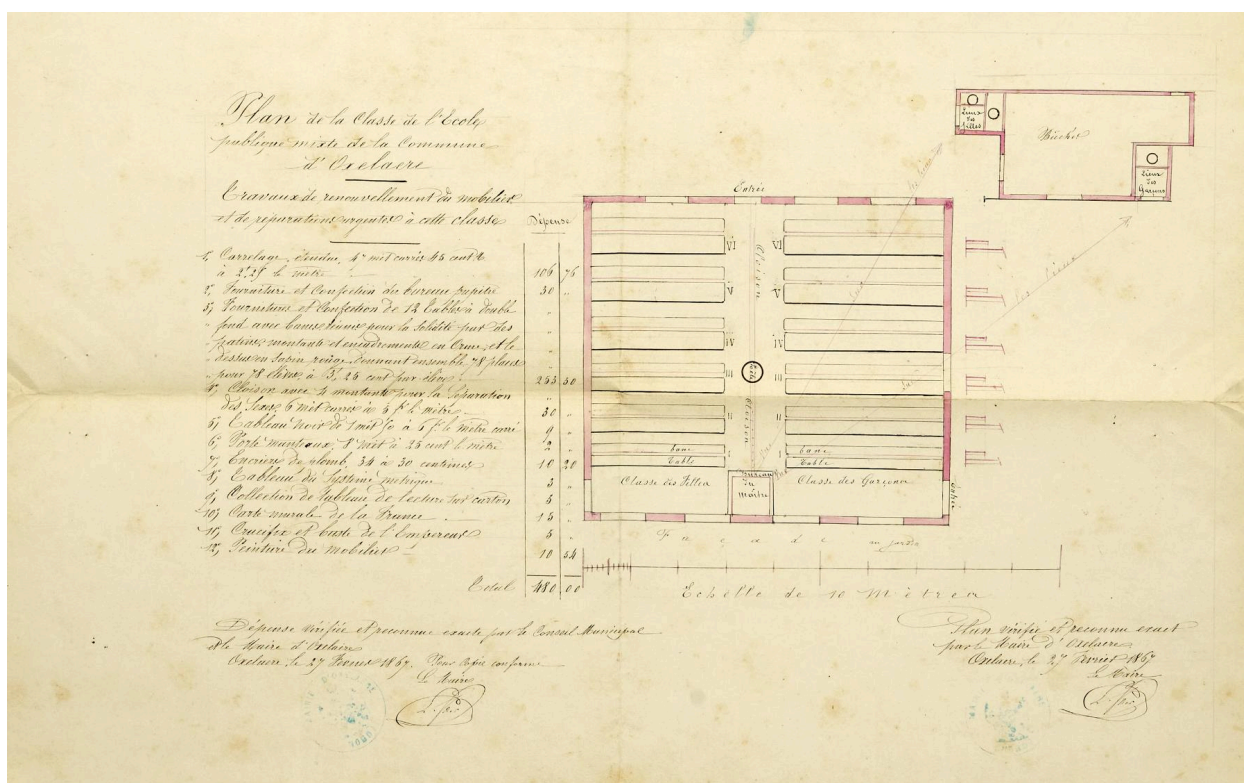 Plan de la Classe de l'Ecole
publique mixte de la Commune
d'Oxelaere
Travaux de renouvellement du mobilier
et de réparations urgentes à cette classe
Dépense
1° Carrelage, étendue, 47 mèt carrés 45 cent
à 2f 25 le mètre 106 76
2° Fourniture et Confection du bureau pupitre 30 "
3° Fourniture et Confection de 12 Tables à double
fond avec bancs tenus pour la Solidité par des
patins, montants et encadrements en Orme, et le
dessus en sapin rouge, donnant ensemble 78 places
pour 78 élèves à 3f, 25 cent par élève 253 50
4° Cloison avec 4 montants pour la Séparation
des Sexes, 6 mèt carrés à 5 f. le mètre 30 "
5° Tableau noir de 1 mèt 80 à 5 f. le mètre carré 9 "
6° Porte manteaux, 8 mèt à 25 cent le mètre 2 "
7° Encriers de plomb, 34 à 30 centimes 10 20
8° Tableau du Système métrique 3 "
9° Collection de tableau de lecture sur carton 5 "
10° Carte murale de la France 15 "
11° Crucifix et buste de l'Empereur 5 "
12° Peinture du mobilier 10 54
Total 480 00
Dépense vérifiée et reconnue exacte par le Conseil Municipal
et le Maire d'Oxelaere
Oxelaere, le 27 Février 1867. Pour Copie conforme
Le Maire
Lieux
des
Filles
Bûcher
Lieux
des
Garçons
Entrée
VI VI
V V
IV IV
III III
II II
I I
Cloison
Poële
Cloison
banc banc
Table Table
Classe des Filles
Bureau
du
Maître
Classe des Garçons
Entrée
Vue sur les lieux
Vue sur les lieux
Façade au jardin
Echelle de 10 Mètres
Plan vérifié et reconnu exact
par le Maire d'Oxelaere
Oxelaere, le 27 Février 1867
Le Maire